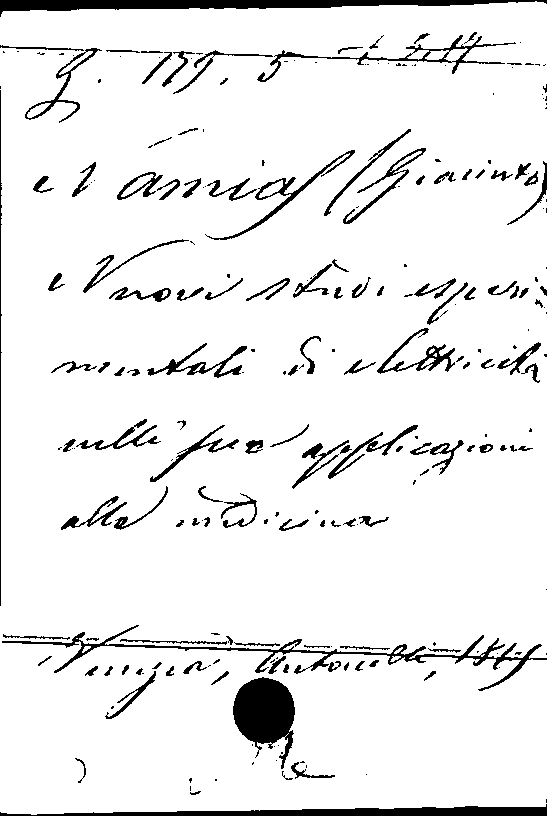 G. 179. 5
Námias (Giacinto)
Nuovi studi esperi-
mentali di elettricità
nelle sue applicazioni
alla medicina
Venezia, Antonelli,